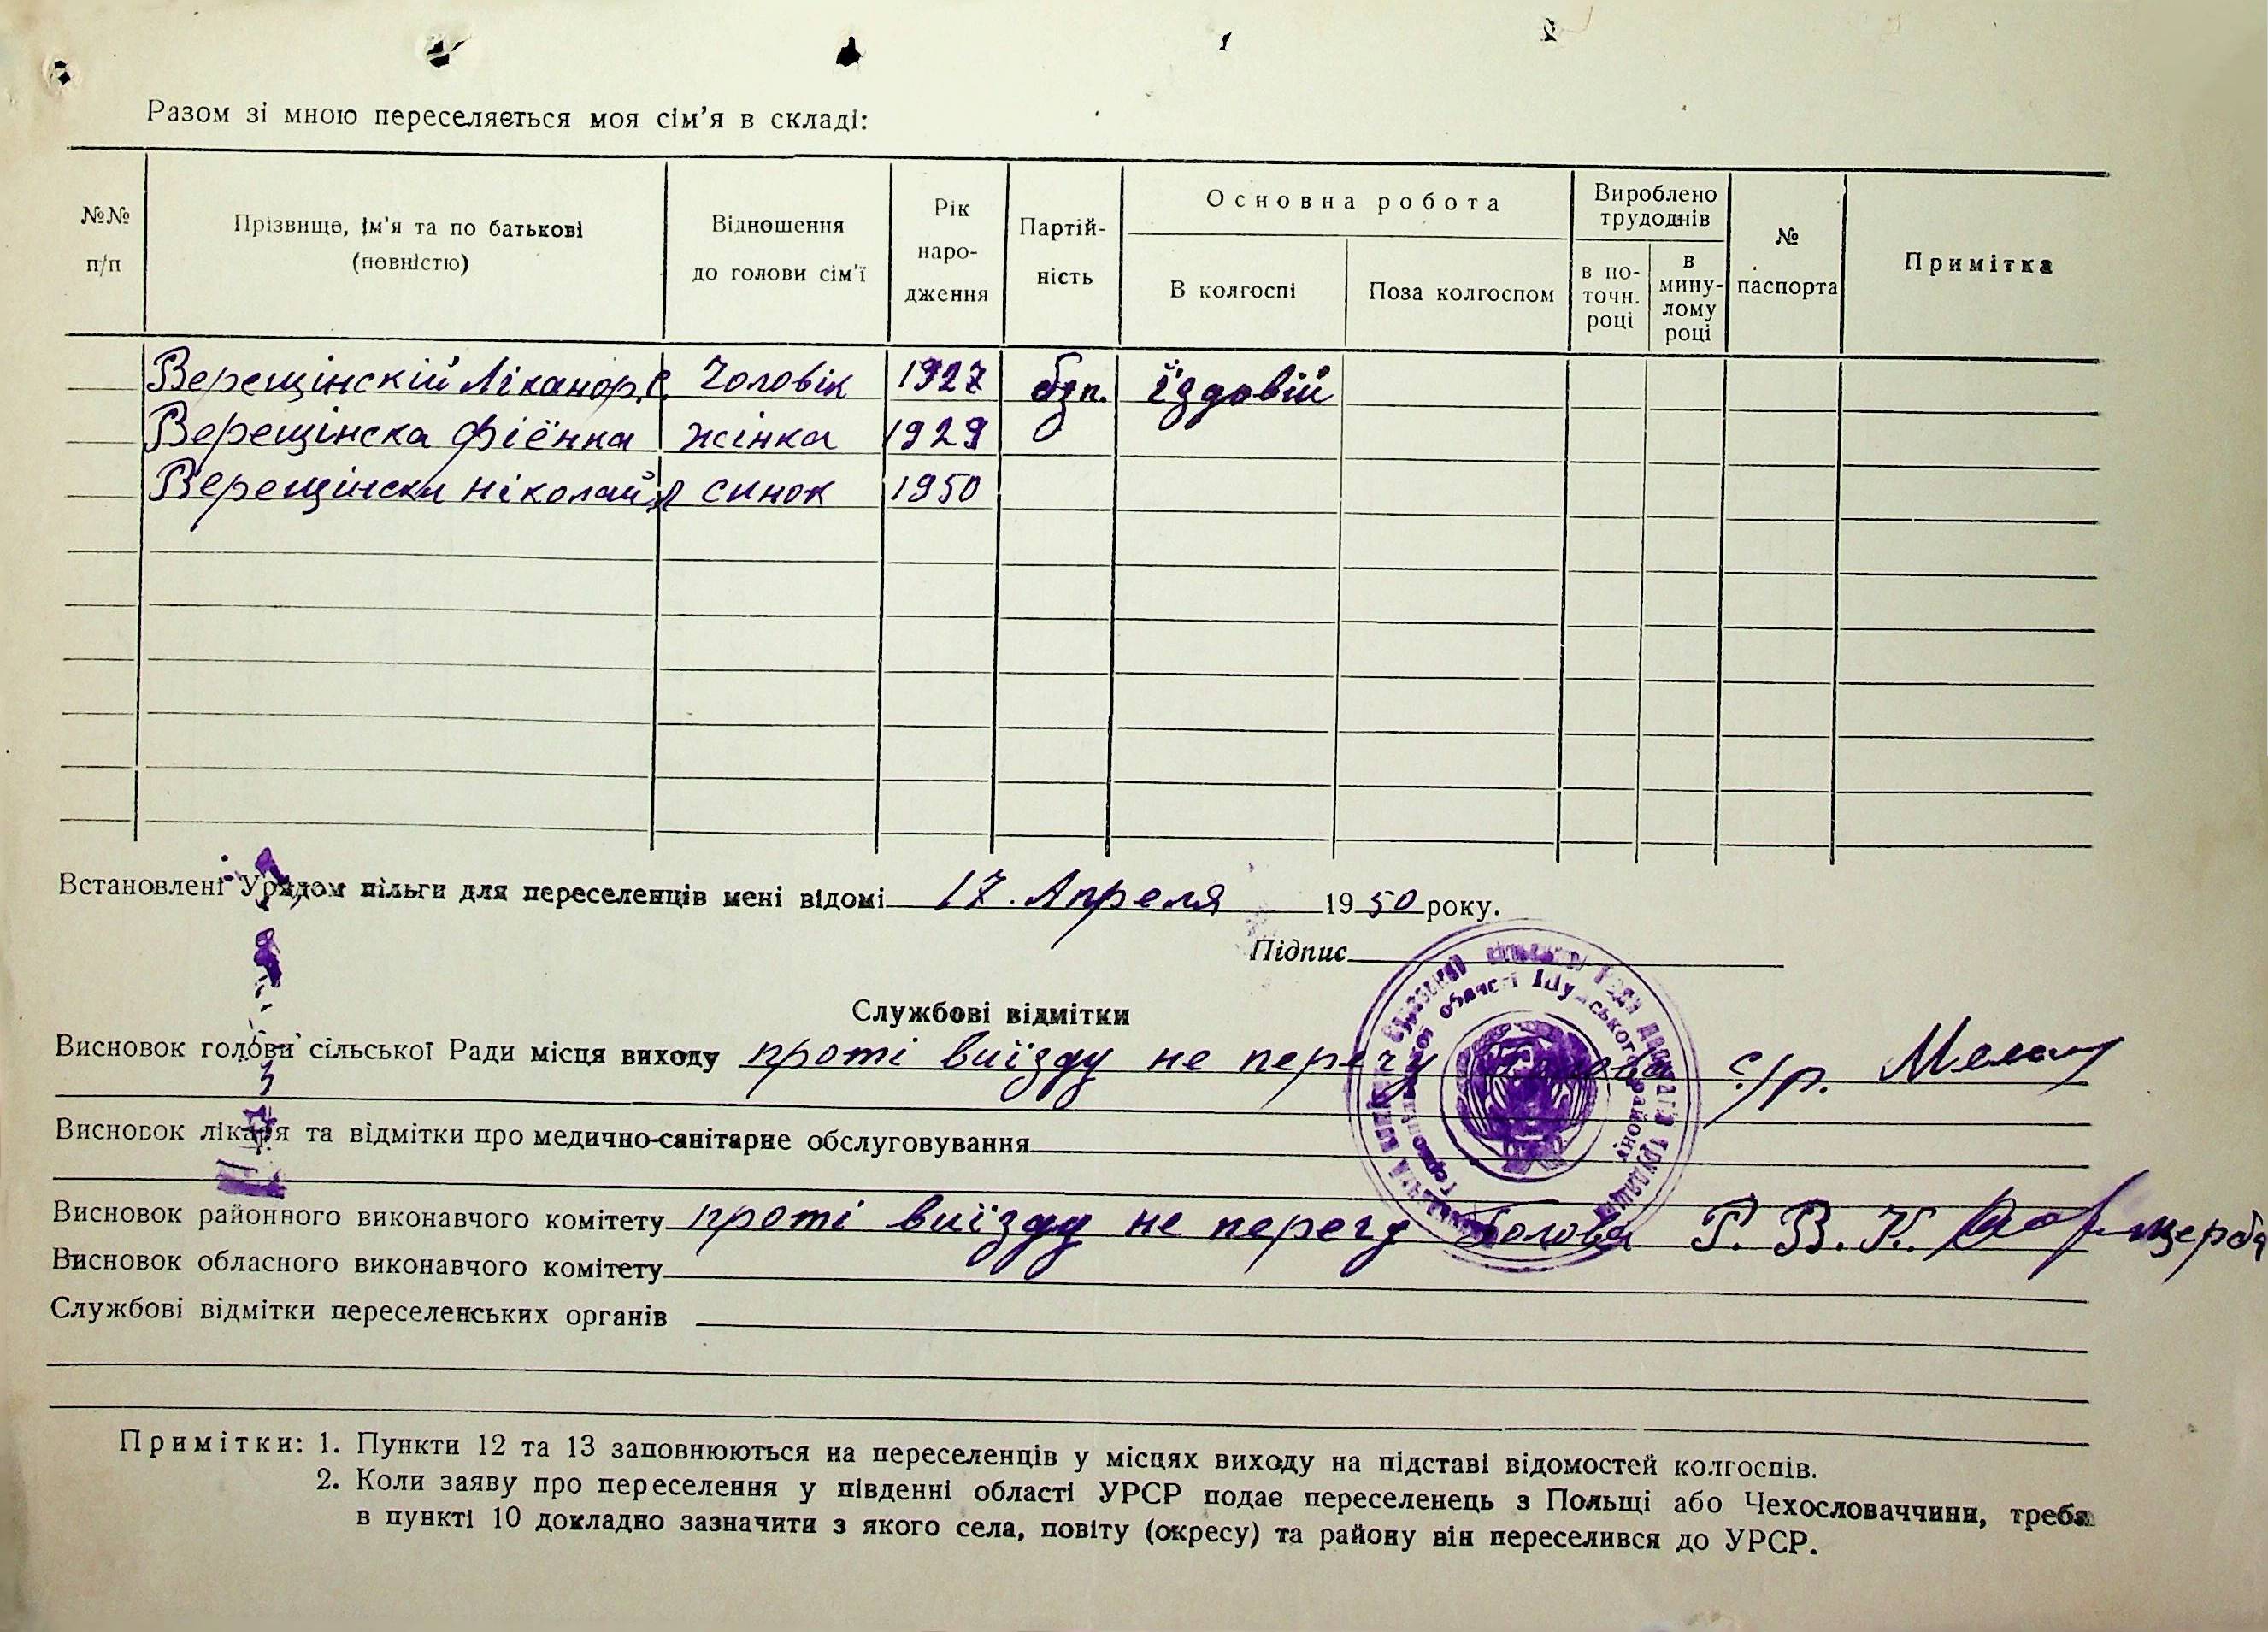 Разом зі мною переселяється моя сім'я в складі:
№№ п/п
Прізвище, ім'я та по батькові (повністю)
Відношення до голови сім'ї
Рік народження
Партійність
Основна робота
В колгоспі
Поза колгоспом
Вироблено трудоднів
в поточн. році
в минулому році
№ паспорта
Примітка
Верещінскій Ліканор С Чоловік 1927 бзп. їздовій
Верещінска Фіёнка жінка 1929
Верещінски Ніколай Л синок 1950
Встановлені Урядом пільги для переселенців мені відомі 17. Апреля 1950 року.
Підпис
Службові відмітки
Висновок голови сільської Ради місця виходу проті виїзду не перечу Голова с/р.
Висновок лікаря та відмітки про медично-санітарне обслуговування
Висновок районного виконавчого комітету проті виїзду не перечу Голова Р. В. К.
Висновок обласного виконавчого комітету
Службові відмітки переселенських органів
Примітки: 1. Пункти 12 та 13 заповнюються на переселенців у місцях виходу на підставі відомостей колгоспів.
2. Коли заяву про переселення у південні області УРСР подає переселенець з Польщі або Чехословаччини, треба
в пункті 10 докладно зазначити з якого села, повіту (окресу) та району він переселився до УРСР.